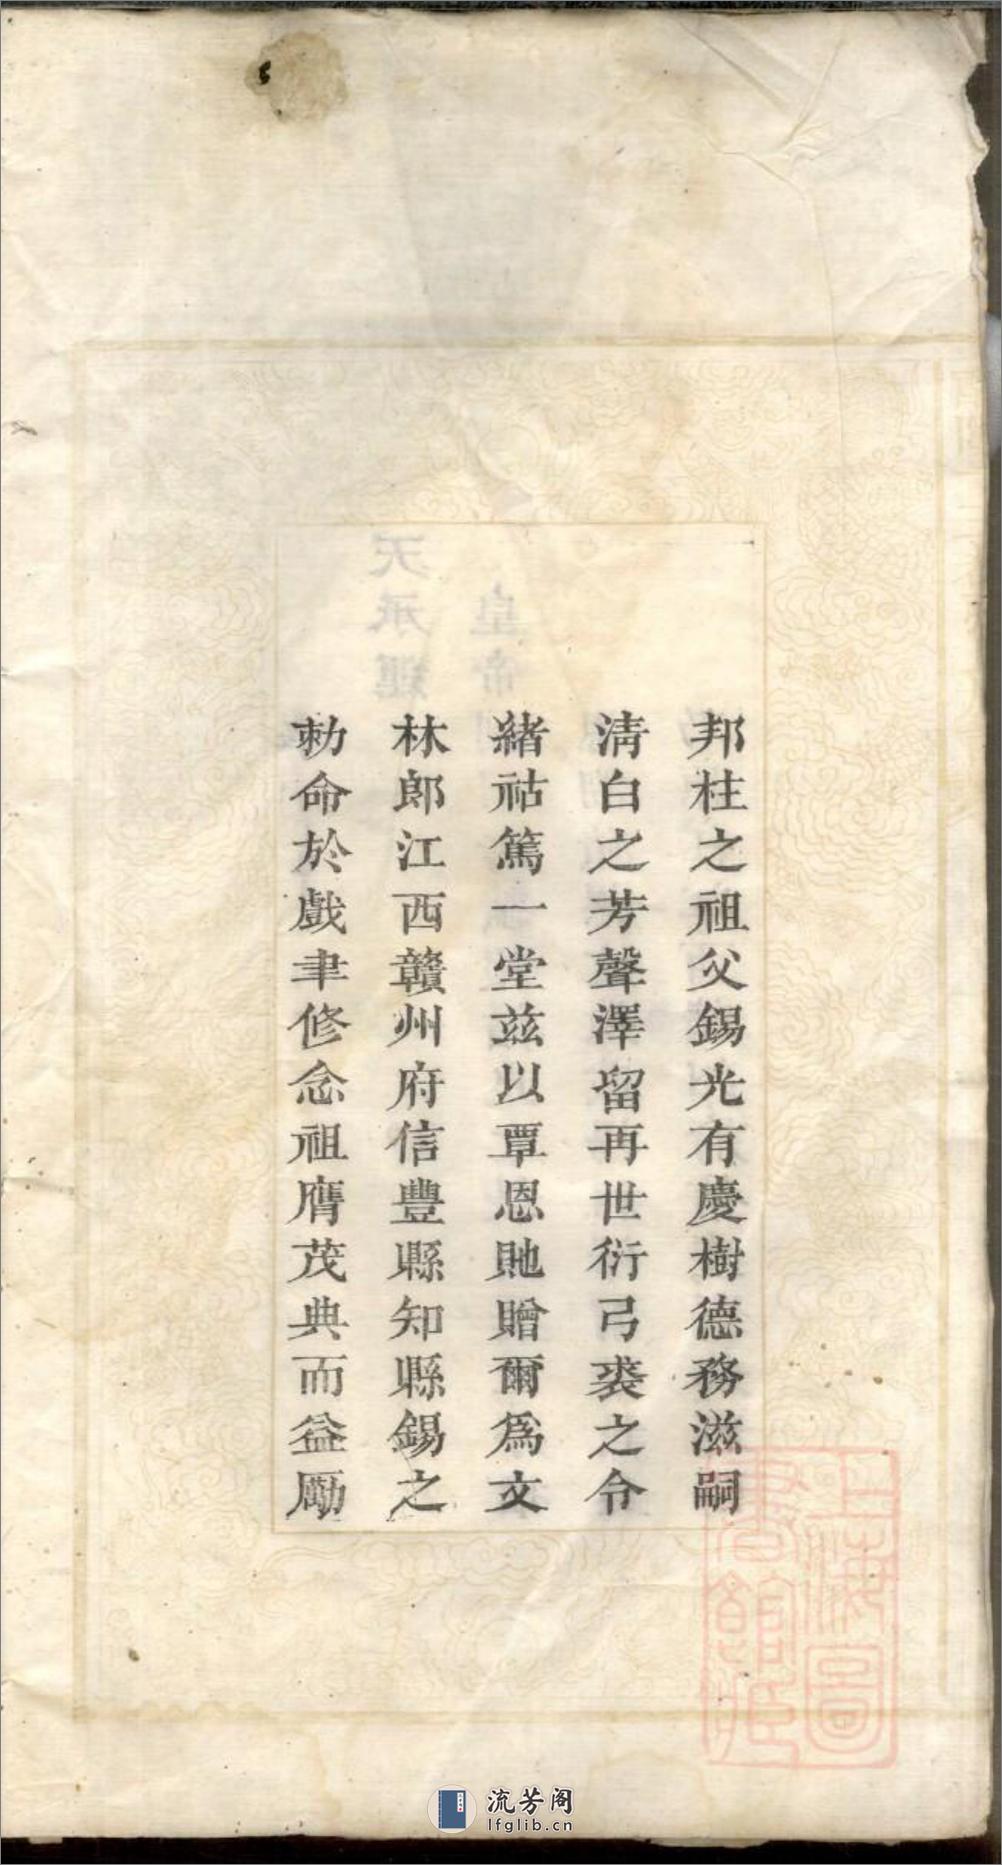 邦柱之祖父錫光有慶樹德務滋嗣
清白之芳聲澤留再世衍弓裘之令
緒祜篤一堂茲以覃恩貤贈爾為文
林郎江西贛州府信豐縣知縣錫之
勅命於戲聿修念祖膺茂典而益勵
天承運
皇帝
上海圖
書館藏
流芳阁
lfglib.cn